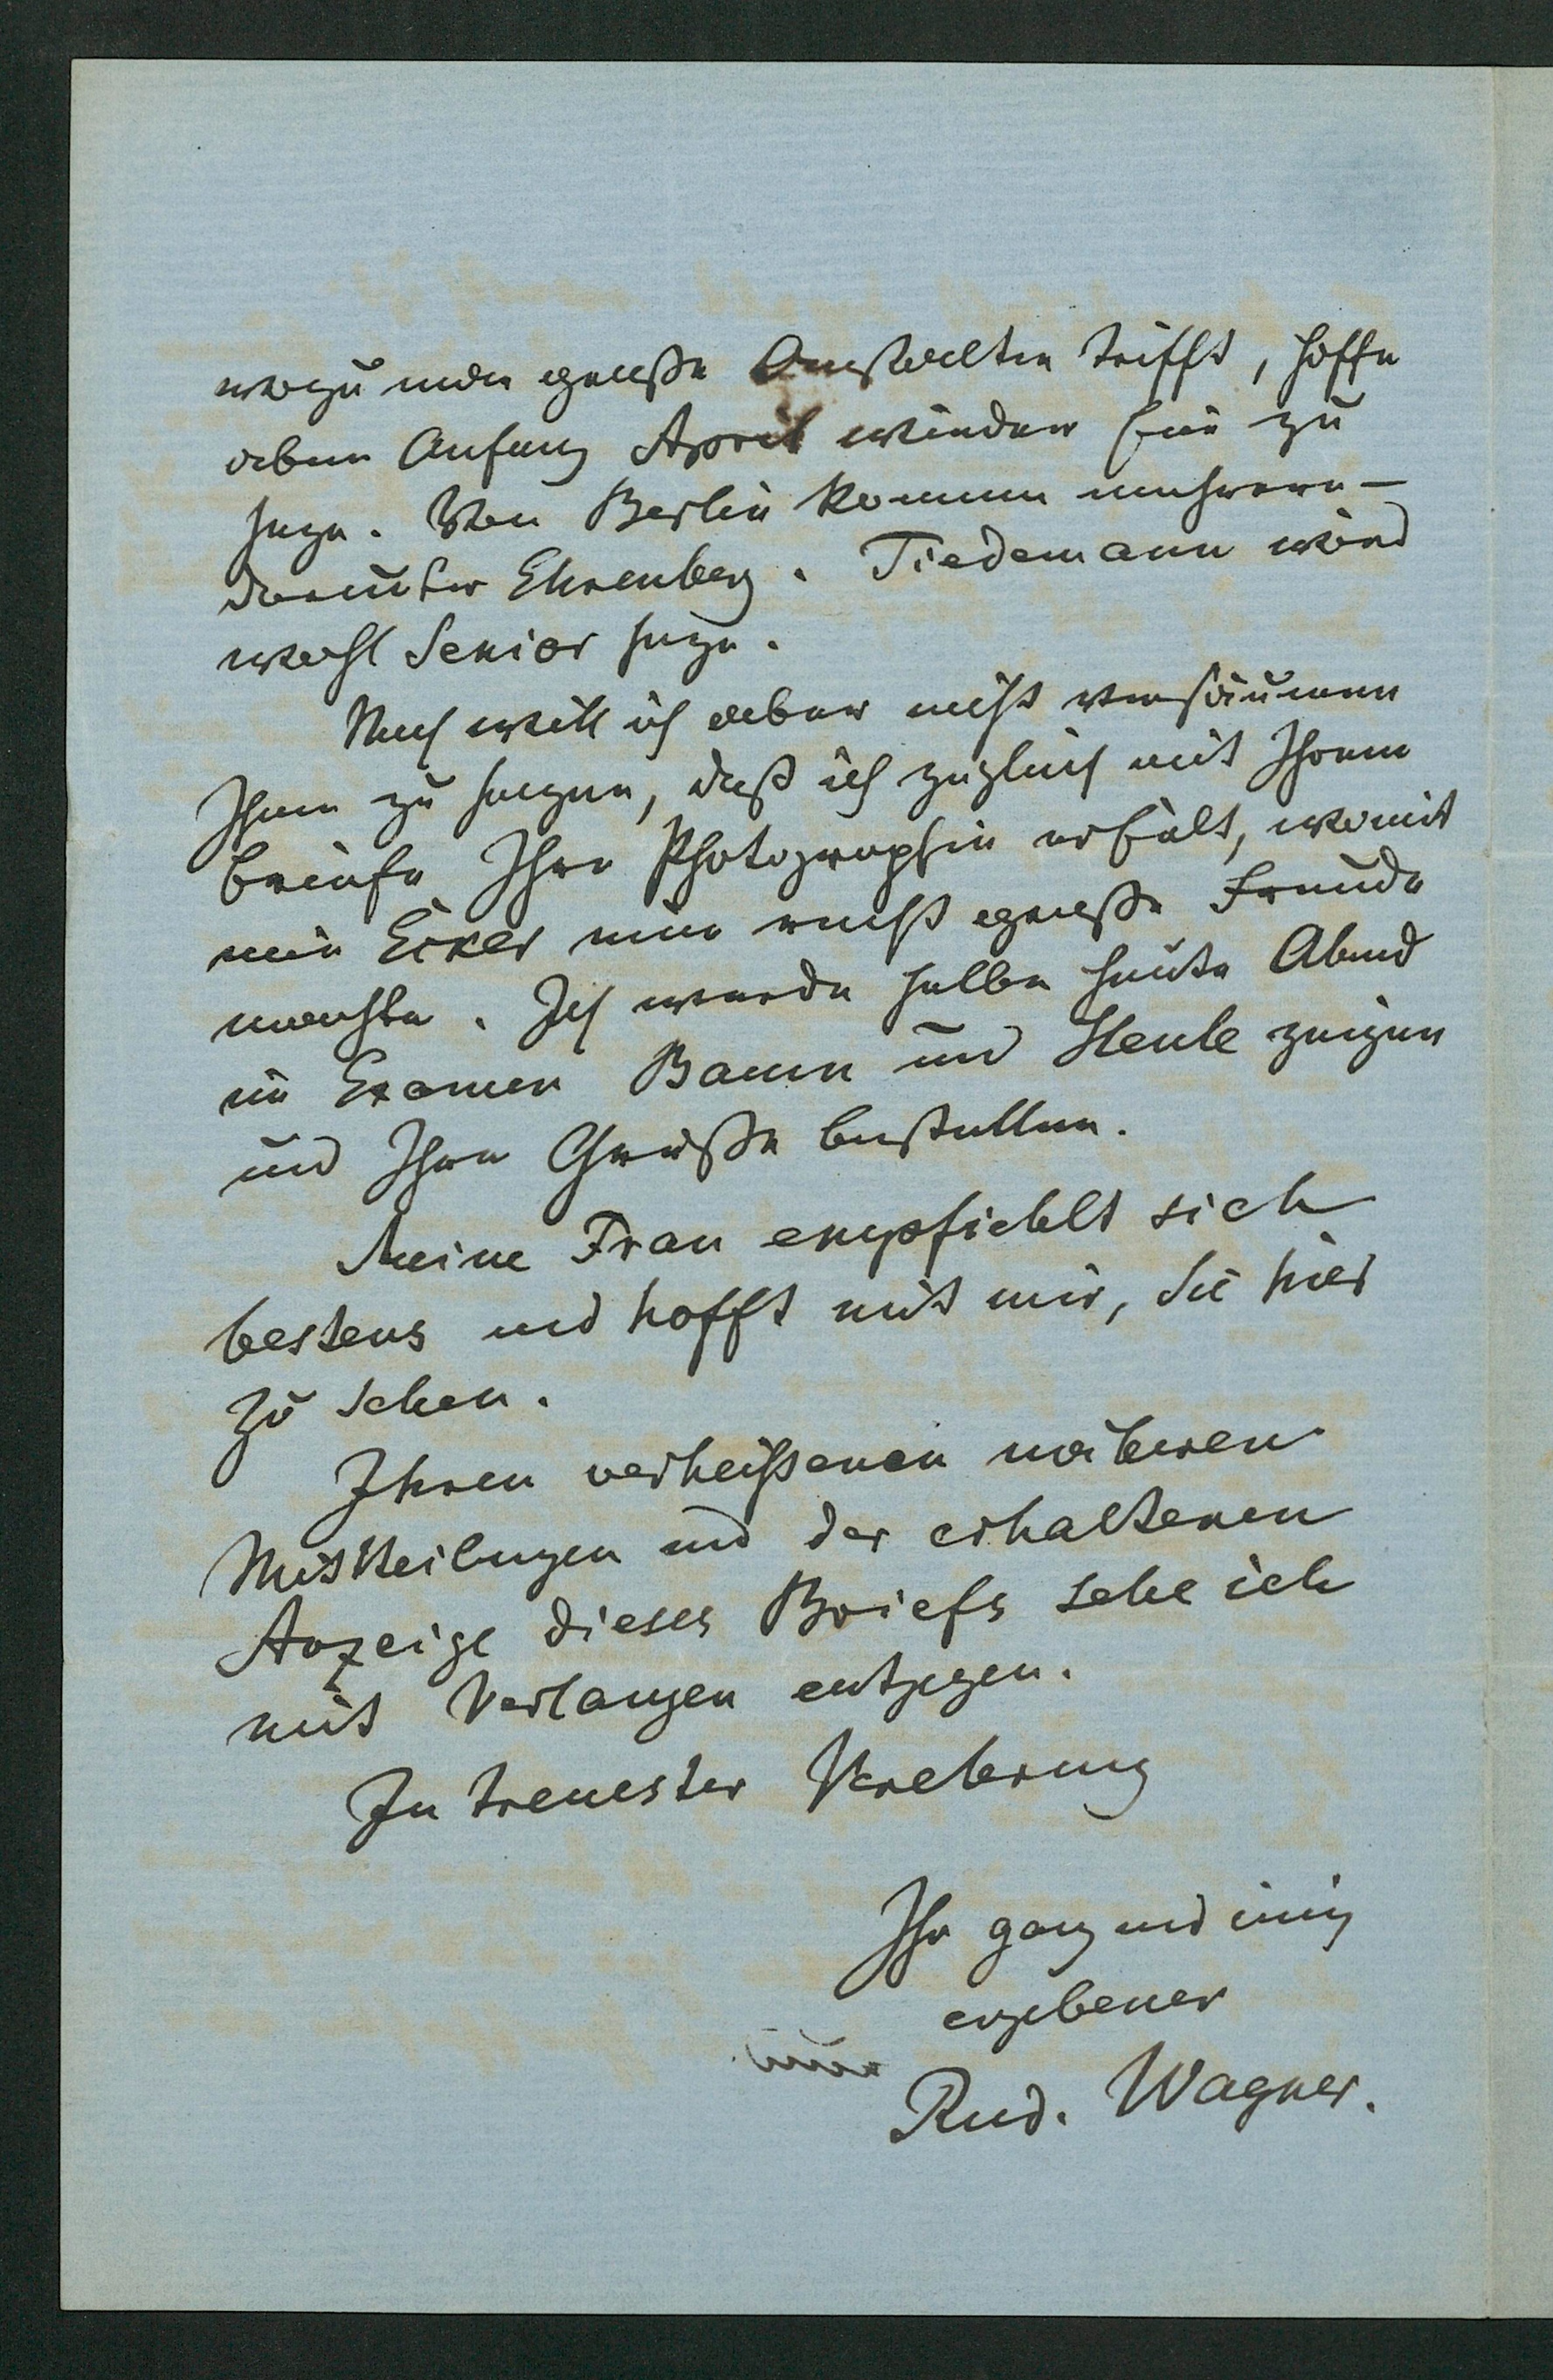 wozu man große Anstalten trifft, hoffe
aber Anfang April wieder hier zu
seyn. Von Berlin kommen mehrere –
darunter Ehrenberg. Tiedemann wird
wohl Senior seyn.
Noch will ich aber nicht versäumen
Ihnen zu sagen, daß ich zugleich mit Ihrem
Briefe Ihre Photographie erhielt, womit
mir Ecker eine recht große Freude
machte. Ich werde selbe heute Abend
im Examen Baum und Henle zeigen
und Ihre Grüße bestellen.
Meine Frau empfiehlt sich
bestens und hofft mit mir, Sie hier
zu sehen.
Ihren verheißenen näheren
Mittheilungen und der erhaltenen
Anzeige dieses Briefs sehe ich
mit Verlangen entgegen.
In treuester Verehrung
Ihr ganz und innig
ergebener
Rud. Wagner.